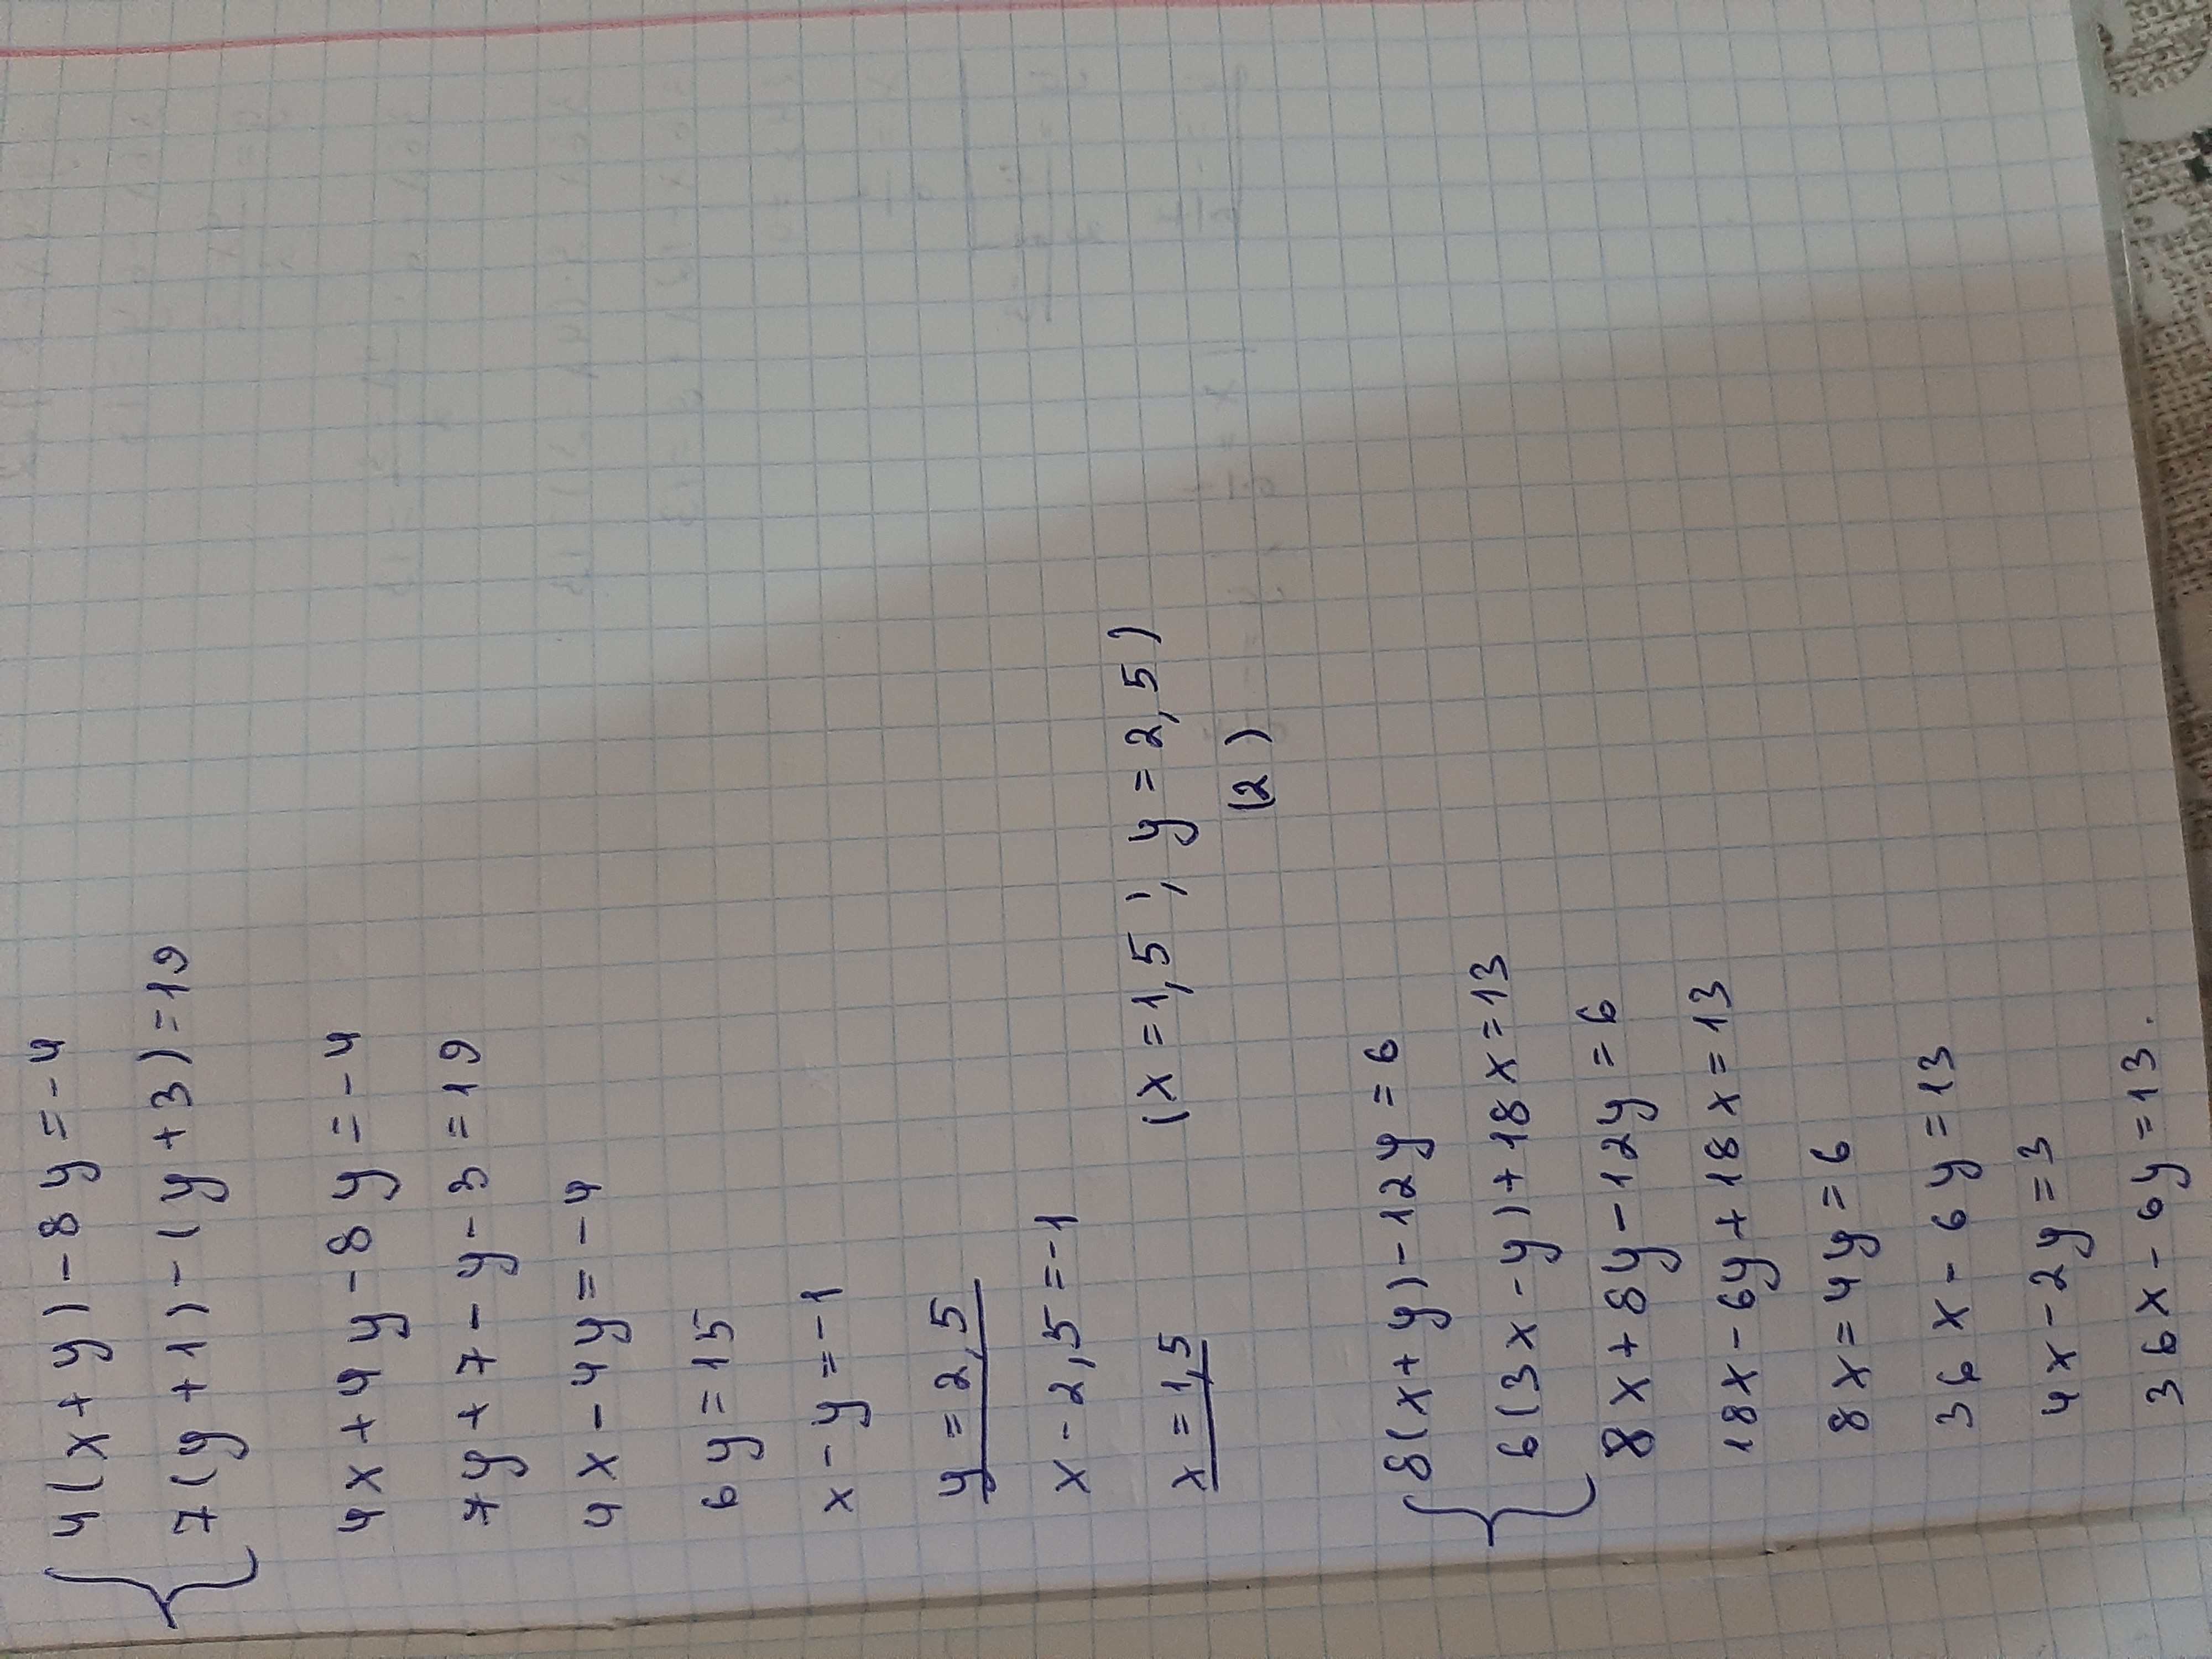 4(x+y)-8y=-4
7(y+1)-(y+3)=19
4x+4y-8y=-4
7y+7-y-3=19
4x-4y=-4
6y=15
x-y=-1
y=2,5
x-2,5=-1
x=1,5
(x=1,5; y=2,5)
(2)
8(x+y)-12y=6
6(3x-y)+18x=13
8x+8y-12y=6
18x-6y+18x=13
8x=4y=6
36x-6y=13
4x-2y=3
36x-6y=13.